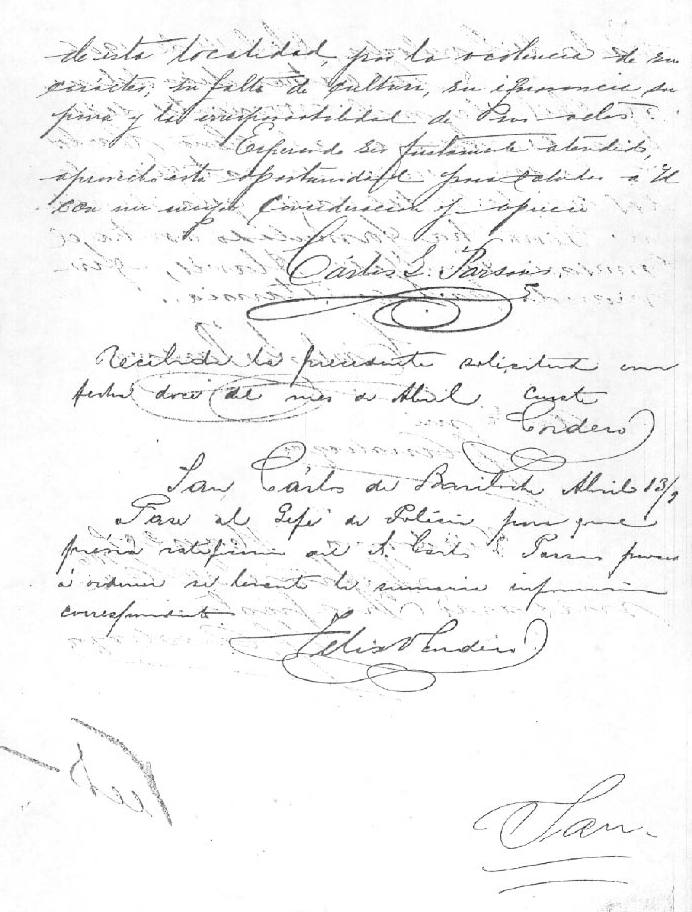 de esta localidad, por la violencia de su
caracter, su falta de cultura, su ignorancia, su
y la irresponsabilidad de sus actos.
Esperando ser justamente atendido,
aprovecho esta oportunidad para saludar a U
con mi mayor consideracion y aprecio
Carlos L. Parsons
Recibida la precedente solicitud con
fecha doce del mes de Abril
Cordero
San Cárlos de Bariloche Abril 13/
Pase al Gefe de Policia para que
prévia ratificacion del S. Carlos Parsons proceda
á ordenar se levante la sumaria informacion
correspondiente
Felix Cordero
San-